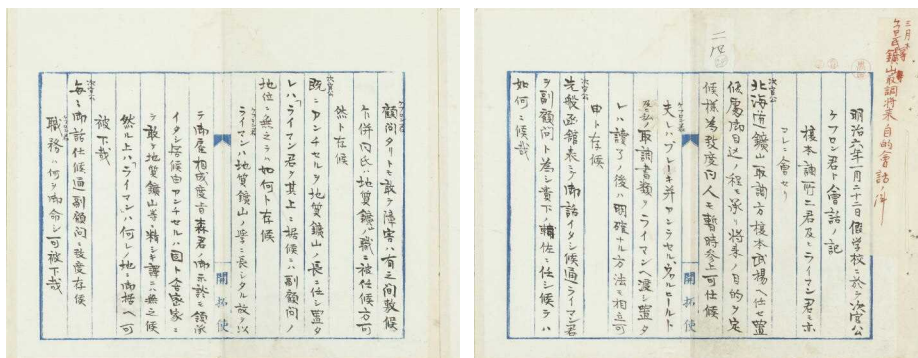 鑛山取調将来ノ目的會話ノ件
明治六年一月二十二日假學校ニ於テ次官公
ケフロン君ト會話ノ記
榎本調所二君及ヒライマン君モ亦
コレニ會セリ
次官公
北海道鑛山取調方榎本武揚ヘ仕セ置
候處御目込ノ程モ承リ将来ノ目的ヲ定
候様為致度同人モ暫時参上可仕候
ケフロン君
夫レハブレーキ并ニワラセル
取調書類ヲライマンヘ渡シ
レハ讀了ノ後ハ明確ナル方法モ相立可
申ト存候
次官公
先般函館表ニテ御話イタシ候通ライマン君
ヲ副顧問ト為シ貴下ノ輔佐ニ仕シ候テハ
如何ニ候哉
開拓使
ケフロン君
顧問タリモ敢テ障害ハ有之間敷候
乍併同氏ハ地質鑛ノ職ニ被仕候方可
然ト存候
次官公
既ニアンチセルヲ地質鑛山ノ長ニ仕シ置タ
レハ「ライマン君ヲ其上ニ据候ニハ副顧問ノ
地位ニ無之テハ如何ト存候
ケフロン君
ライマンハ地質鑛山ノ學ニ長シタル故ヲ以
テ御雇相成度旨森君ノ御示談ニ領承
イタシ居候由アンチセルハ固ト舎密家ニ
テ敢テ地質鑛山等ニ精シキ譯ニハ無之候
然ル上ハ「ライマン」ハ何レノ地ニ御据ヘ可
被下哉
次官公
毎々御話仕候通副顧問ニ致度存候
ケフロン君
職務ハ何ヲ御命シ可被下哉
開拓使